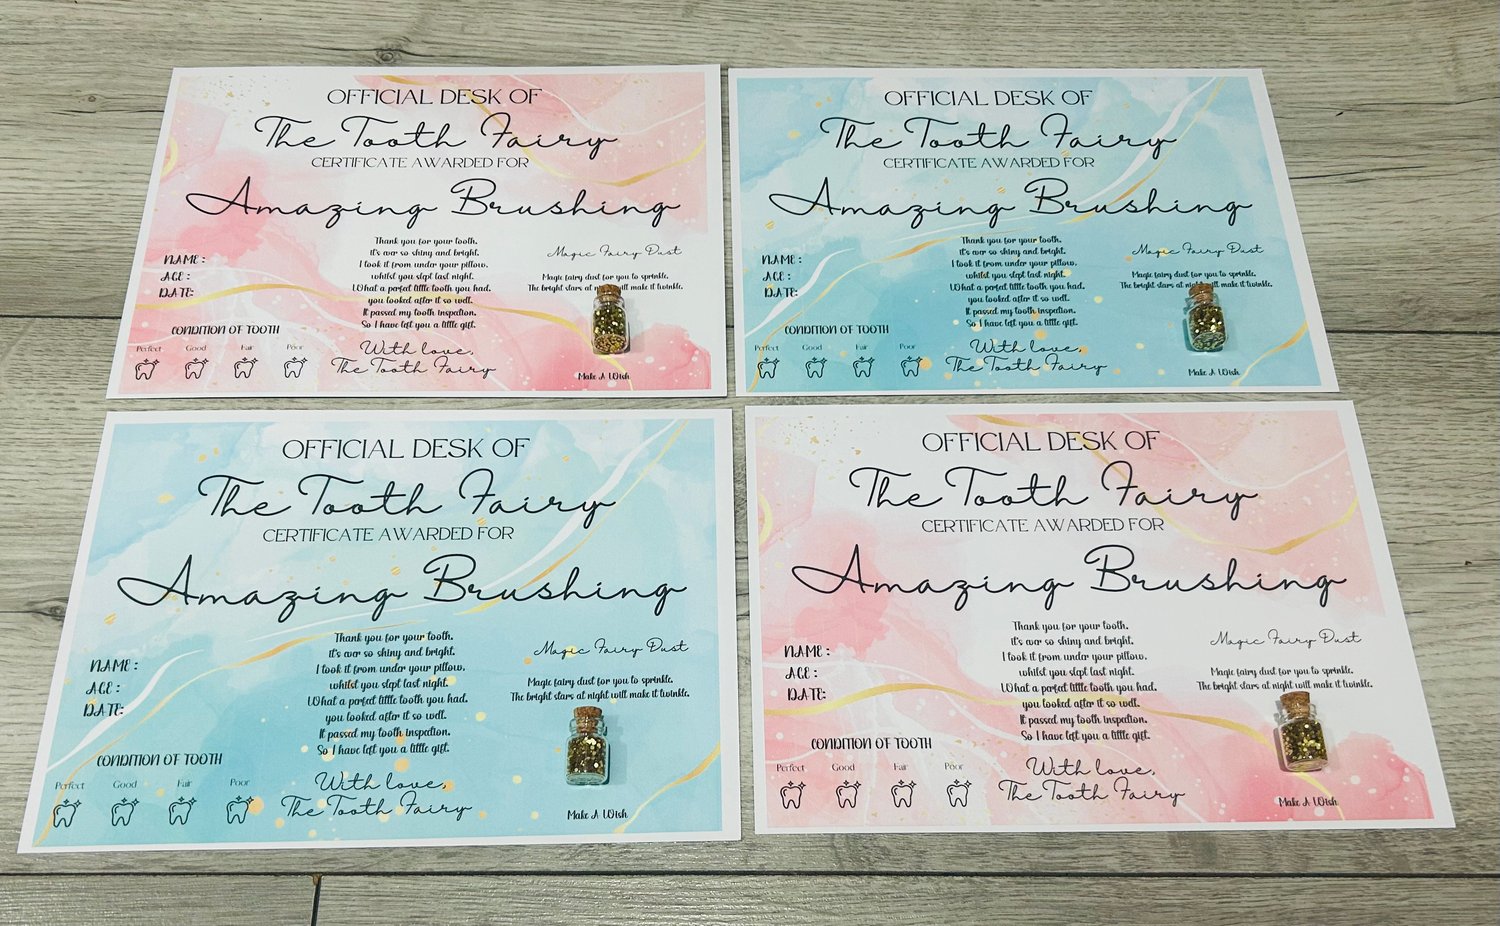 OFFICIAL DESK OF
The Tooth Fairy
CERTIFICATE AWARDED FOR
Amazing Brushing
NAME :
AGE :
DATE:
CONDITION OF TOOTH
Perfect Good Fair Poor
Thank you for your tooth.
it's ever so shiny and bright.
I took it from under your pillow.
whilst you slept last night.
What a perfect little tooth you had.
you looked after it so well.
It passed my tooth inspection.
So I have left you a little gift.
With love,
The Tooth Fairy
Magic Fairy Dust
Magic fairy dust for you to sprinkle.
The bright stars at night will make it twinkle.
Make A Wish
OFFICIAL DESK OF
The Tooth Fairy
CERTIFICATE AWARDED FOR
Amazing Brushing
NAME :
AGE :
DATE:
CONDITION OF TOOTH
Perfect Good Fair Poor
Thank you for your tooth.
it's ever so shiny and bright.
I took it from under your pillow.
whilst you slept last night.
What a perfect little tooth you had.
you looked after it so well.
It passed my tooth inspection.
So I have left you a little gift.
With love,
The Tooth Fairy
Magic Fairy Dust
Magic fairy dust for you to sprinkle.
The bright stars at night will make it twinkle.
Make A Wish
OFFICIAL DESK OF
The Tooth Fairy
CERTIFICATE AWARDED FOR
Amazing Brushing
NAME :
AGE :
DATE:
CONDITION OF TOOTH
Perfect Good Fair Poor
Thank you for your tooth.
it's ever so shiny and bright.
I took it from under your pillow.
whilst you slept last night.
What a perfect little tooth you had.
you looked after it so well.
It passed my tooth inspection.
So I have left you a little gift.
With love,
The Tooth Fairy
Magic Fairy Dust
Magic fairy dust for you to sprinkle.
The bright stars at night will make it twinkle.
Make A Wish
OFFICIAL DESK OF
The Tooth Fairy
CERTIFICATE AWARDED FOR
Amazing Brushing
NAME :
AGE :
DATE:
CONDITION OF TOOTH
Perfect Good Fair Poor
Thank you for your tooth.
it's ever so shiny and bright.
I took it from under your pillow.
whilst you slept last night.
What a perfect little tooth you had.
you looked after it so well.
It passed my tooth inspection.
So I have left you a little gift.
With love,
The Tooth Fairy
Magic Fairy Dust
Magic fairy dust for you to sprinkle.
The bright stars at night will make it twinkle.
Make A Wish